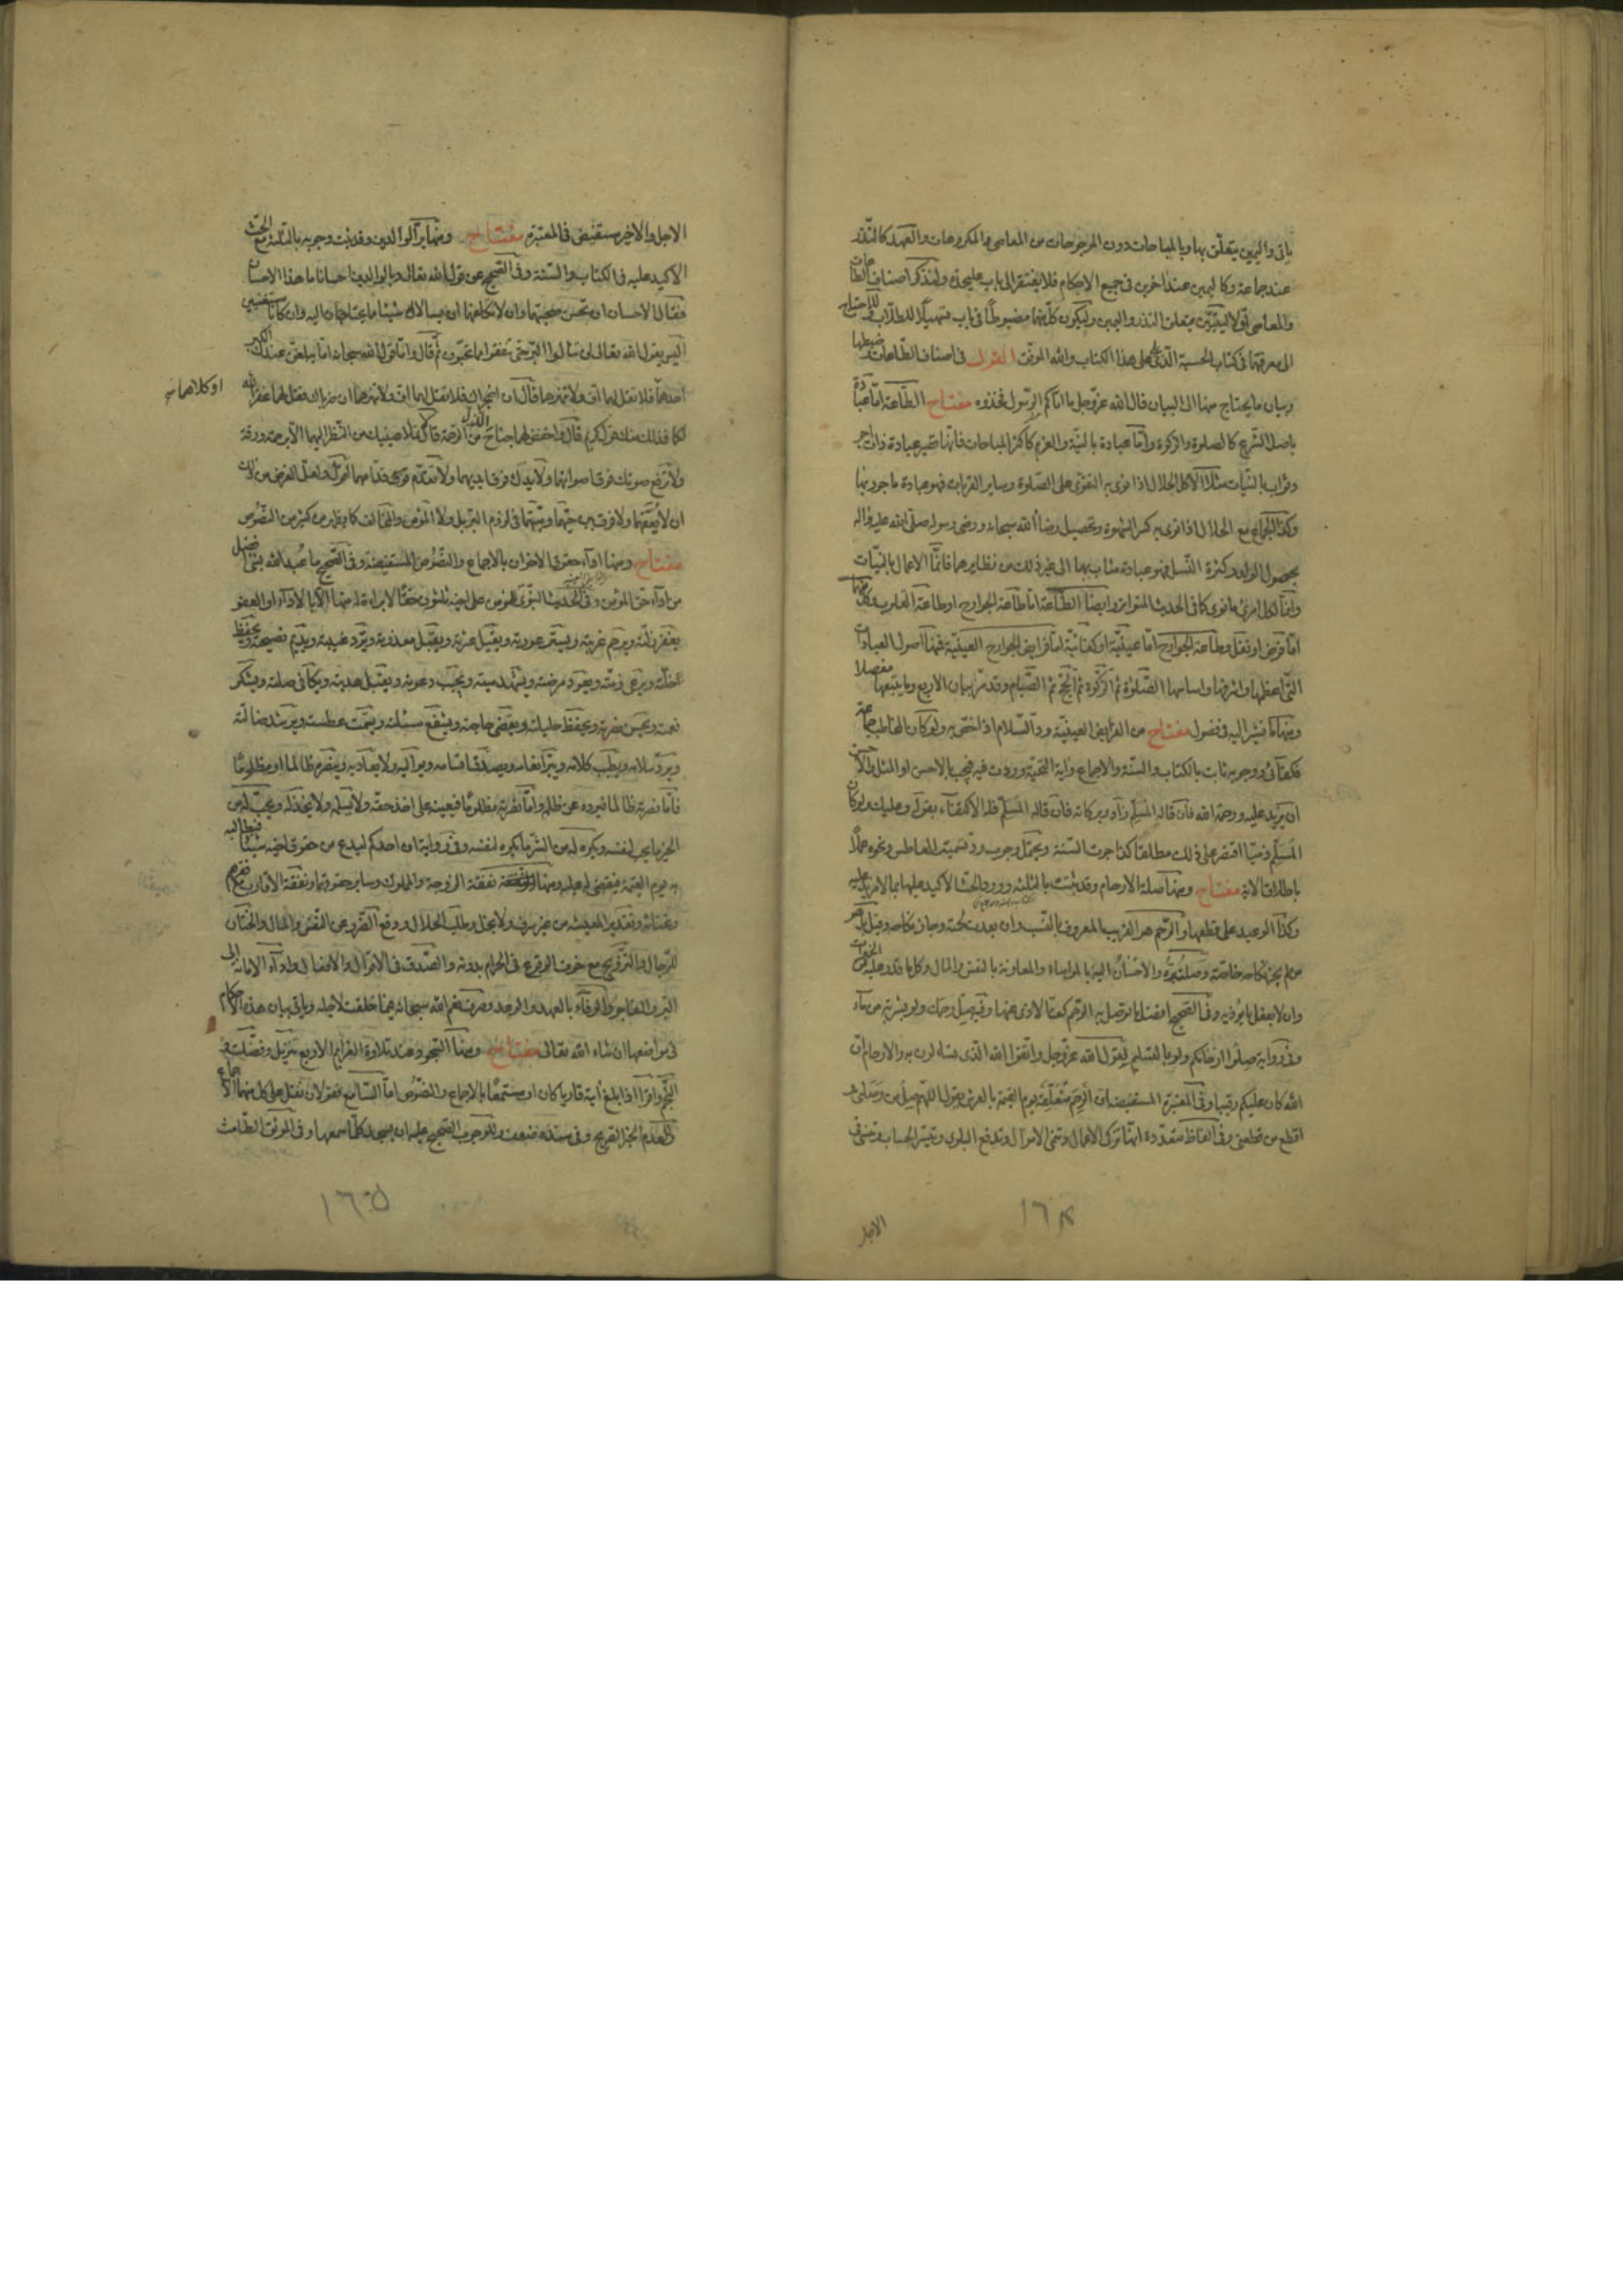 ياتى واليمين يتعلّق بها وبالمباحات دون المرجوحات من المعاصى والمكروهات والعهد كالنذر
عند جماعة وكاليمين عند اخرين فى جميع الاحكام فلا يفتقر الى باب عليحدة ولنذكر اصناف الطاعات
والمعاصى اولا ليتبيّن متعلق النذر واليمين وليكون كلّ منهما مضبوطًا فى باب تسهيلًا للطلّاب وللاحتياج
الى معرفتها فى كتاب الحسبة الّذى على هذا الكتاب والله الموفّق القول فى اصناف الطّاعات وضبطها
وبيان ما يحتاج منها الى البيان قال الله عزّ وجل ما اتاكم الرّسول فخذوه مفتاح الطّاعة امّا عبادة
باصل الشّرع كالصلوة والزكوة وامّا عبادة بالنيّة والعزم كاكثر المباحات فانّها تصير عبادة ذات اجر
وثواب بالنيّات مثلا الاكل الحلال اذا نوى به التقوّى على الصّلوة وساير القربات فهو عبادة ماجور بها
وكذا الجماع مع الحلال اذا نوى به كسر الشهوة وتحصيل رضا الله سبحانه ورضى رسوله صلّى الله عليه واله
بحصول الولد وكثرة النّسل فهو عبادة مثاب بها الى غير ذلك من نظايرهما فانّما الاعمال بالنيّات
وانّما لكل امرئ ما نوى كما فى الحديث المتواتر وايضا الطّاعة امّا طاعة الجوارح او طاعة القلوب وكل منهما
امّا فرض او نفل وطاعة الجوارح امّا عينيّة او كفائيّة امّا فرايض الجوارح العينيّة فمنها اصول العبادات
الّتى اعظمها واشرفها واساسها الصّلوة ثم الزّكوة ثم الحجّ ثم الصّيام وقد مرّ بيان الاربع وما يتبعها مفصلا
ومنها ما نشير اليه فى فصول مفتاح من الفرايض العينيّة ردّ السّلام اذا خصّ به ولو كان المخاطب جماعة
فكفائىّ ووجوبه ثابت بالكتاب والسنّة والاجماع واية التحيّة وردت فيه فيجب بالاحسن او المثل والاحسن
ان يزيد عليه ورحمة الله فان قاله المسلّم زاد وبركاته فان قاله المسلّم فله الاكتفاء بقوله وعليك ولو كان
المسلّم ذميّا اقتصر على ذلك مطلقا كذا جرت السّنة ويحتمل وجوب ردّ تسميت العاطس ونحوه عملًا
باطلاق الاية مفتاح ومنها صلة الارحام وقد ثبت بالثلثة وورود الحثّ الاكيد عليها بما لا مزيد عليه
وكذا الوعيد على قطعها والرّحم هو القريب المعروف بالنّسب وان بعدت لحمته وجاز نكاحه وقيل بل هو
من لم يجز نكاحه خاصّة وصلته برّه والاحسان اليه بالمواساة والمعاونة بالنفس والمال وكل ما قدر عليه من الخيرات
وان لا يفعل ما يؤذيه وفى الصّحيح افضل ما توصل به الرّحم كفّ الاذى عنها وفيه صل رحمك ولو بشربة من ماء
وفى رواية صلوا ارحامكم ولو بالتسليم لقول الله عزّ وجل واتّقوا الله الّذى تساءلون به والارحام انّ
الله كان عليكم رقيبا وفى المعتبرة المستفيضة انّ الرّحم متعلّقة يوم القيمة بالعرش يقول اللهم صل من وصلنى و
اقطع من قطعنى وفى الفاظ متعدّدة انّها تزكى الاعمال وتنمى الاموال وتدفع البلوى وتيسّر الحساب وتنسئ فى
الاجل
١٦٤
الاجل والاخير مستفيض فى المعتبرة مفتاح ومنها برّ الوالدين وقد ثبت وجوبه بالثلثة مع الحثّ
الاكيد عليه فى الكتاب والسنّة وفى الصّحيح عن قول الله تعالى وبالوالدين احسانا ما هذا الاحسان
فقال الاحسان ان تحسن صحبتهما وان لا تكلفهما ان يسالاك شيئا مما يحتاجان اليه وان كانا مستغنيين
اليس يقول الله تعالى لن تنالوا البرّ حتى تنفقوا مما تحبّون ثم قال وامّا قول الله سبحانه امّا يبلغنّ عندك الكبر
احدهما فلا تقل لهما افّ ولا تنهرهما قال ان اضجراك فلا تقل لهما افّ ولا تنهرهما ان ضرباك فقل لهما غفر الله
او كلاهما
لكما فذلك منك قول كريم قال واخفض لهما جناح الذّل من الرّحمة قال لا تملأ عينيك من النّظر اليهما الّا برحمة ورقة
ولا ترفع صوتك فوق اصواتهما ولا يدك فوق ايديهما ولا تقدّم قدّامهما اقول ولعلّ الغرض من ذلك
ان لا يعقّهما ولا فرق بين حيّهما وميّتهما فى لزوم البرّ بل ولا المؤمن والمخالف كما يظهر من كثير من النّصوص
مفتاح ومنها اداء حقوق الاخوان بالاجماع والنّصوص المستفيضة وفى الصّحيح ما عبد الله بشىء افضل
من اداء حقّ المؤمن وفى الحديث النّبوى للمؤمن على اخيه ثلثون حقّا لا براءة له منها الّا بالاداء او العفو
يغفر زلّته ويرحم غربته ويستر عورته ويقيل عثرته ويقبل معذرته ويردّ غيبته ويديم نصيحته ويحفظ
خلّته ويرعى ذمّته ويعود مرضته ويشهد ميّته ويجيب دعوته ويقبل هديّته ويكافى صلته ويشكر
نعمته ويحسن نصرته ويحفظ حليلته ويقضى حاجته ويشفع مسئلته ويسمّت عطسته ويرشد ضالّته
ويردّ سلامه ويطيّب كلامه ويبرّ انعامه ويصدّق اقسامه ويواليه ولا يعاديه وينصره ظالما او مظلومًا
فامّا نصرته ظالما فيردّه عن ظلمه وامّا نصرته مظلومًا فيعينه على اخذ حقّه ولا يسلمه ولا يخذله ويحبّ له من
الخير ما يحب لنفسه ويكره له من الشرّ ما يكره لنفسه وفى رواية ان احدكم ليدع من حقوق اخيه شيئا فيطالبه
به يوم القيمة فيقضى له عليه ومنها نفقة الزوجة والمملوك وساير حقوقهما ونفقة الاقارب مع فقرهم
وغنائه وتقدير المعيشة من غير سرف ولا بخل وطلب الحلال ودفع الضّرر عن النّفس والمال والختان
للرّجال والتّزويج مع خوف الوقوع فى الحرام بدونه والصّدق فى الاقوال والافعال واداء الامانة الى
البرّ والفاجر والوفاء بالعهد والوعد وصرف نعم الله سبحانه فيما خلقت لاجله وياتى بيان هذه الاحكام
فى مواضعها ان شاء الله تعالى مفتاح ومنها السّجود عند تلاوة العزايم الاربع تنزيل وفصّلت و
النّجم واقرأ اذا بلغ اية قاريا كان او مستمعًا بالاجماع والنّصوص امّا السّامع فقولان نقل على كل منهما الاجماع
والعدم الخبر الصّريح وفى سنده ضعف وللوجوب الصّحيح عليه ان يسجد كلّما سمعها وفى الموثّق الطّامث
١٦٥